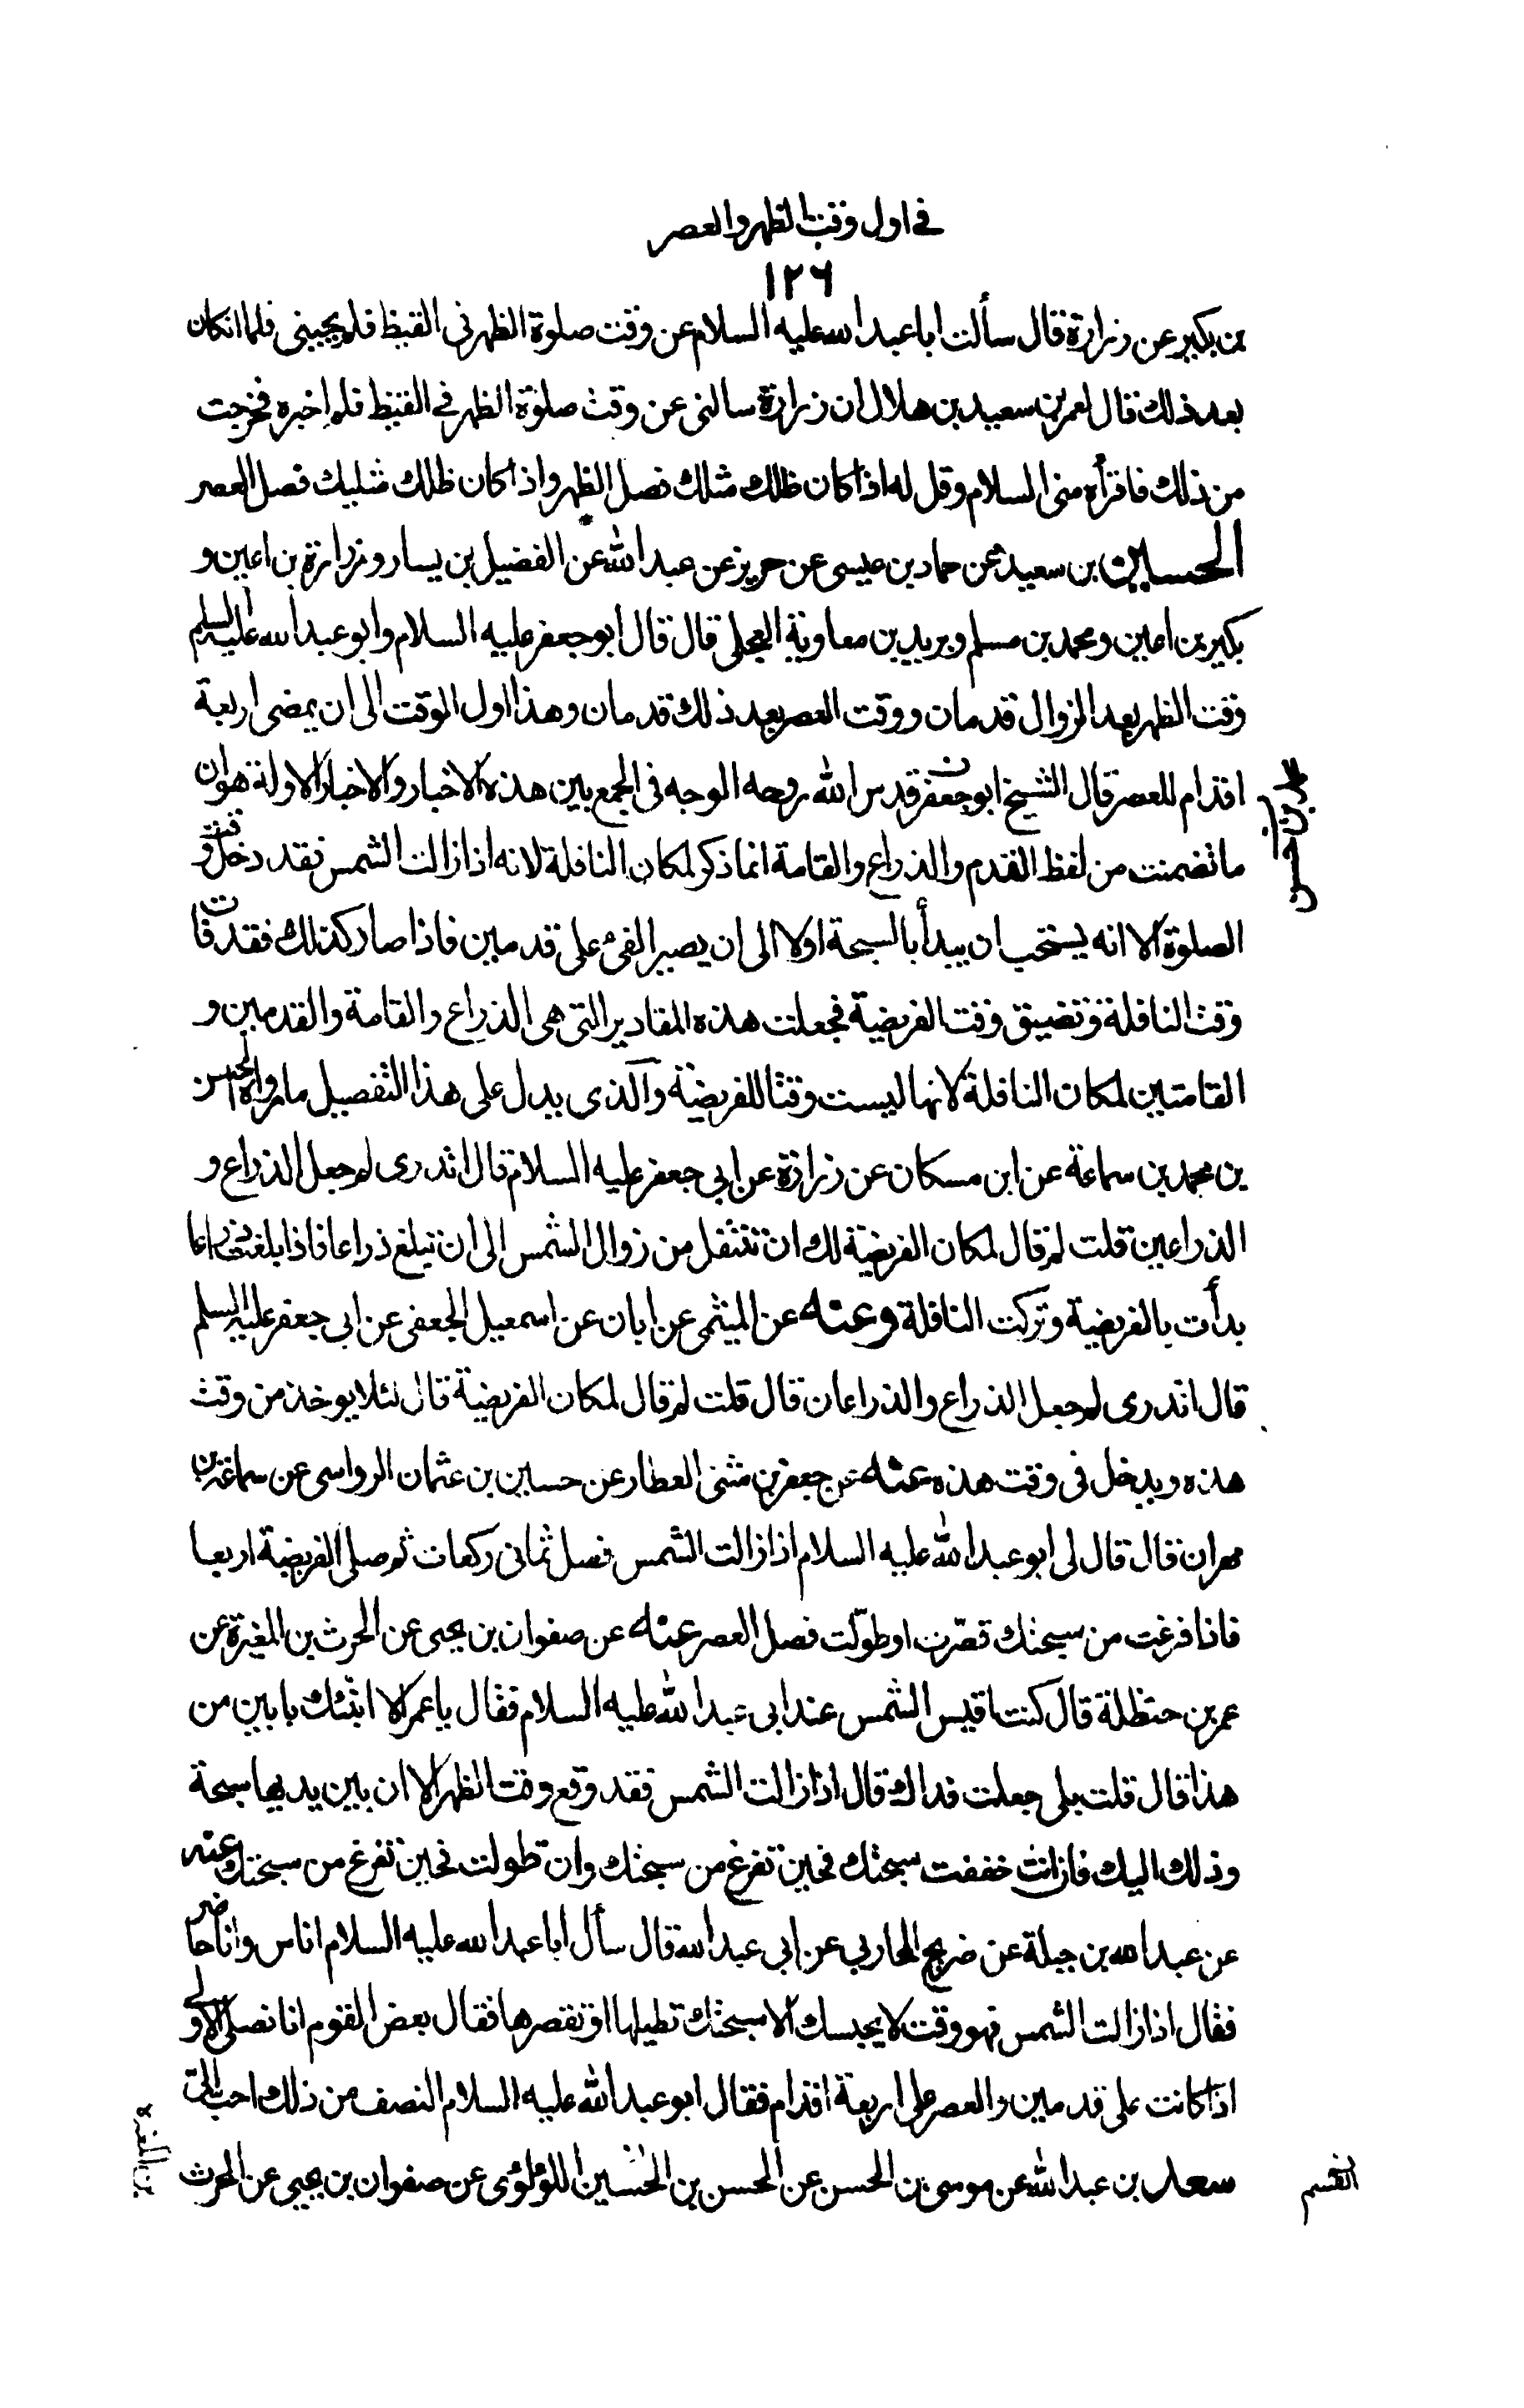 في اول وقت الظهر والعصر
١٢٦
بن بكير عن زرارة قال سألت ابا عبد الله عليه السلام عن وقت صلوة الظهر في القيظ فلم يجبني فلما ان كان
بعد ذلك قال لعمر بن سعيد بن هلال ان زرارة سالني عن وقت صلوة الظهر في القيظ فلم اخبره فخرجت
من ذلك فاقرأه مني السلام وقل له اذا كان ظلك مثلك فصل الظهر واذا كان ظلك مثليك فصل العصر
الحسين بن سعيد عن حماد بن عيسى عن حريز عن عبد الله عن الفضيل بن يسار وزرارة بن اعين و
بكير بن اعين ومحمد بن مسلم وبريد بن معاوية العجلي قال قال ابو جعفر عليه السلام وابو عبد الله عليه السلم
وقت الظهر بعد الزوال قدمان ووقت العصر بعد ذلك قدمان وهذا اول الوقت الى ان يمضى اربعة
اقدام للعصر قال الشيخ ابو جعفر قدس الله روحه الوجه في الجمع بين هذه الاخبار والاخبار الاولة هو ان
ما تضمنت من لفظ القدم والذراع والقامة انما ذكر لمكان النافلة لانه اذا زالت الشمس فقد دخل وقت
الصلوة الا انه يستحب ان يبدأ بالسبحة اولا الى ان يصير الفئ على قدمين فاذا صار كذلك فقد فات
وقت النافلة وتضيق وقت الفريضة فجعلت هذه المقادير التي هي الذراع والقامة والقدمين و
القامتين لمكان النافلة لانها ليست وقتا للفريضة والذي يدل على هذا التفصيل ما رواه الحسن
بن محمد بن سماعة عن ابن مسكان عن زرارة عن ابي جعفر عليه السلام قال اتدري لم جعل الذراع و
الذراعين قلت لم قال لمكان الفريضة لك ان تتنفل من زوال الشمس الى ان تبلغ ذراعا فاذا بلغت ذراعا
بدأت بالفريضة وتركت النافلة وعنه عن الميثمي عن ابان عن اسمعيل الجعفي عن ابي جعفر عليه السلم
قال اتدري لم جعل الذراع والذراعان قال قلت لم قال لمكان الفريضة قال لئلا يوخذ من وقت
هذه ويدخل في وقت هذه عنه عن جعفر بن مثنى العطار عن حسين بن عثمان الرواسي عن سماعة بن
مهران قال قال لي ابو عبد الله عليه السلام اذا زالت الشمس فصل ثماني ركعات ثم صلى الفريضة اربعا
فاذا فرغت من سبحتك قصرت او طولت فصل العصر عنه عن صفوان بن يحيى عن الحرث بن المغيرة عن
عمر بن حنظلة قال كنت اقيس الشمس عند ابي عبد الله عليه السلام فقال يا عمر الا انبئك بابين من
هذا قال قلت بلى جعلت فداك قال اذا زالت الشمس فقد وقع وقت الظهر الا ان بين يديها سبحة
وذلك اليك فان انت خففت سبحتك فحين تفرغ من سبحتك وان طولت فحين تفرغ من سبحتك عنه
عن عبد الله بن جبلة عن ذريح المحاربي عن ابي عبد الله قال سأل ابا عبد الله عليه السلام اناس وانا حاضر
فقال اذا زالت الشمس فهو وقت لا يحبسك الا سبحتك تطيلها او تقصرها فقال بعض القوم انا نصلى الاولى
اذا كانت على قدمين والعصر على اربعة اقدام فقال ابو عبد الله عليه السلام النصف من ذلك احب الي
سعد بن عبد الله عن موسى بن الحسن عن الحسن بن الحسين اللؤلؤى عن صفوان بن يحيى عن الحرث
بن المغيرة